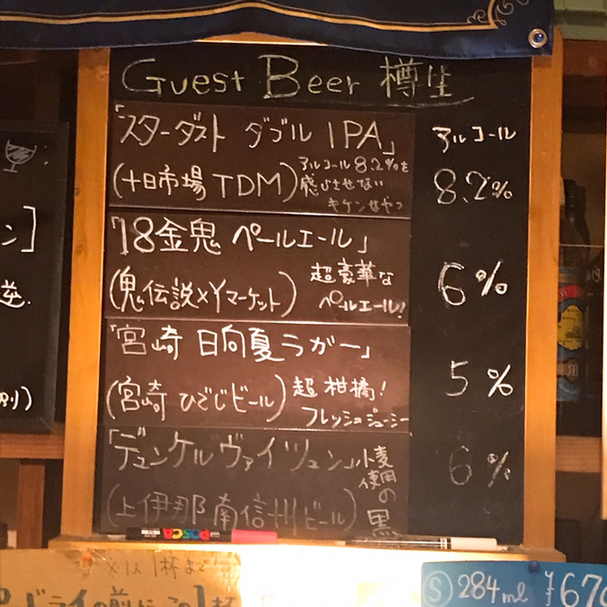 Guest Beer 樽生
「スターダスト ダブル IPA」
アルコール
(十日市場 TDM)
アルコール8.2%を
感じさせない
キケンなヤツ
8.2%
「18金鬼 ペールエール」
(鬼伝説×Yマーケット)
超豪華な
ペールエール!
6%
「宮崎 日向夏ラガー」
(宮崎 ひでじビール)
超柑橘!
フレッシュジューシー
5%
「デュンケルヴァイツェン」
小麦
使用
の黒
(上伊那 南信州ビール)
6%
ン]
逆.
posca
1杯まで
ドライの前にこの1杯
Ⓢ284ml ¥670